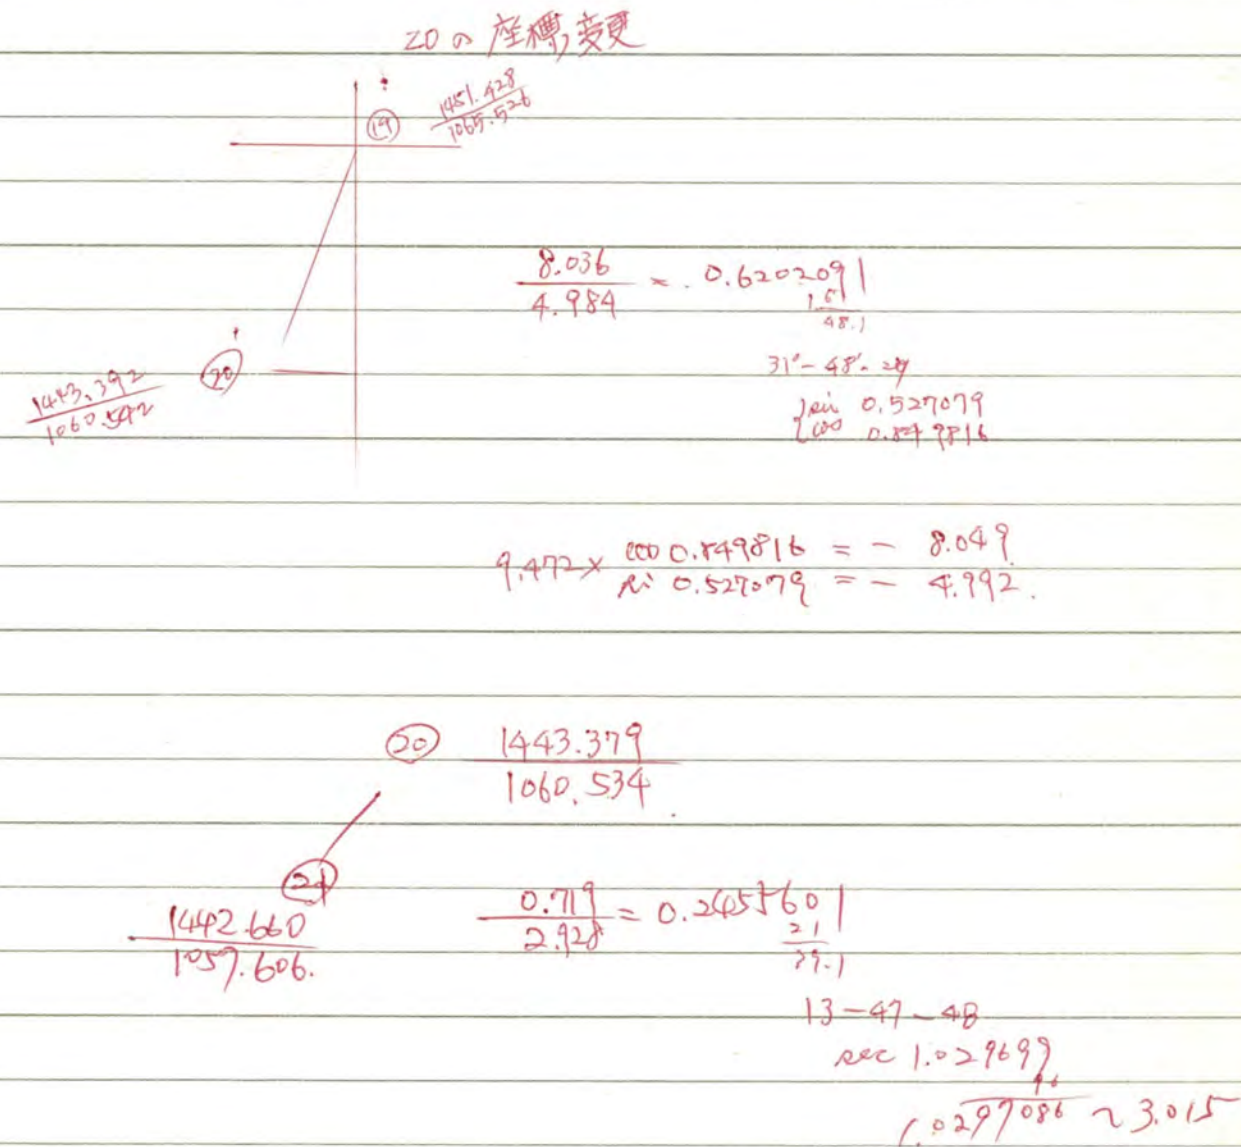 20の座標変更
⑲ 1451.428
1065.526
8.036
4.984 = 0.6202091
48.1
⑳ 1443.392
1060.542
31°-48'-
sin 0.527079
cos 0.849816
9.472× cos 0.849816 = - 8.049
sin 0.527079 = - 4.992.
⑳ 1443.379
1060.534
㉑
1442.660
1057.606.
0.719
2.928 = 0.2455601
21
39.1
13-47-48
sec 1.029699
1.0297086 ~ 3.015